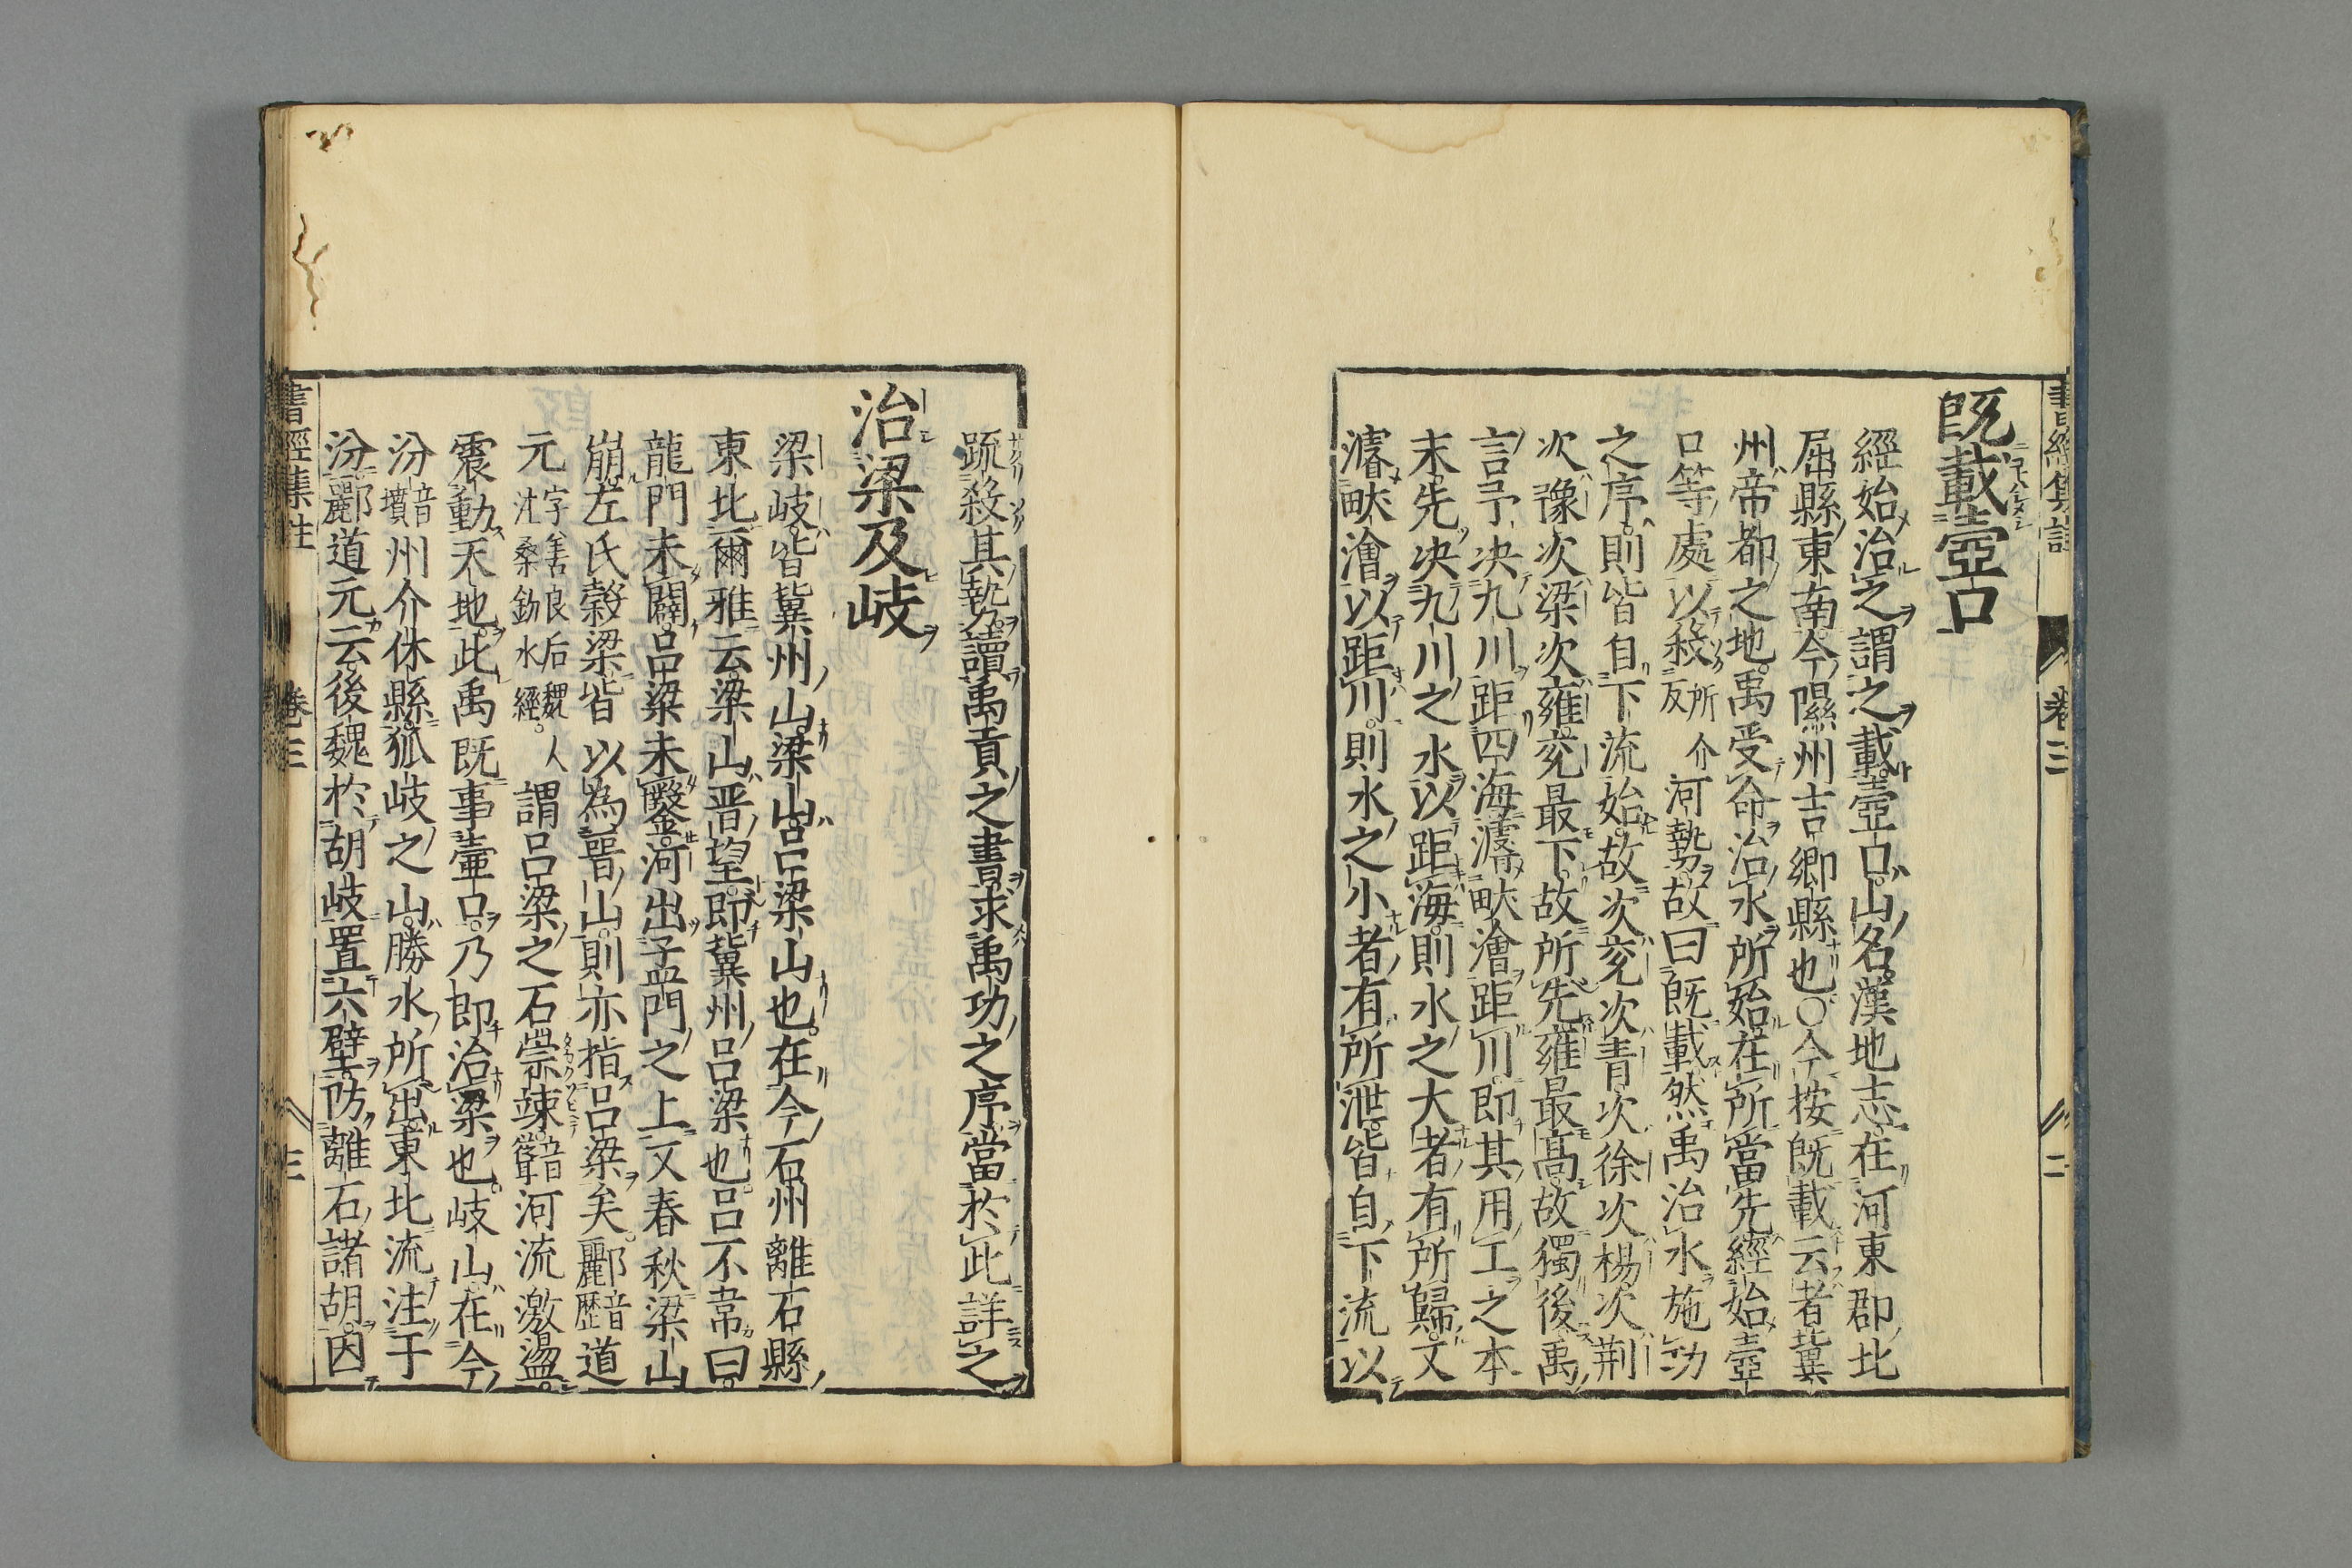 書經集註 卷三 二
既載壺口
經始治之謂之載壺口山名漢地志在河東郡北
屈縣東南今隰州吉鄉縣也○今按既載云者冀
州帝都之地禹受命治水所始在所當先經始壺
口等處以殺所介反河勢故曰既載然禹治水施功
之序則皆自下流始故次兗次青次徐次楊次荆
次豫次梁次雍兗最下故所先雍最高故獨後禹
言予決九川距四海濬畎澮距川即其用工之本
末先決九川之水以距海則水之大者有所歸又
濬畎澮以距川則水之小者有所泄皆自下流以
疏殺其勢讀禹貢之書求禹功之序當於此詳之
治梁及岐
梁岐皆冀州山梁山呂梁山也在今石州離石縣
東北爾雅云梁山晋望即冀州呂梁也呂不韋曰
龍門未闢呂梁未鑿河出孟門之上又春秋梁山
崩左氏穀梁皆以為晋山則亦指呂梁矣酈音歷道
元字善長后魏人注桑欽水經謂呂梁之石崇竦音聳河流激盪
震動天地此禹既事壺口乃即治梁也岐山在今
汾音墳州介休縣狐岐之山勝水所出東北流注于
汾酈道元云後魏於胡岐置六壁防離石諸胡因
書經集註 卷三 三